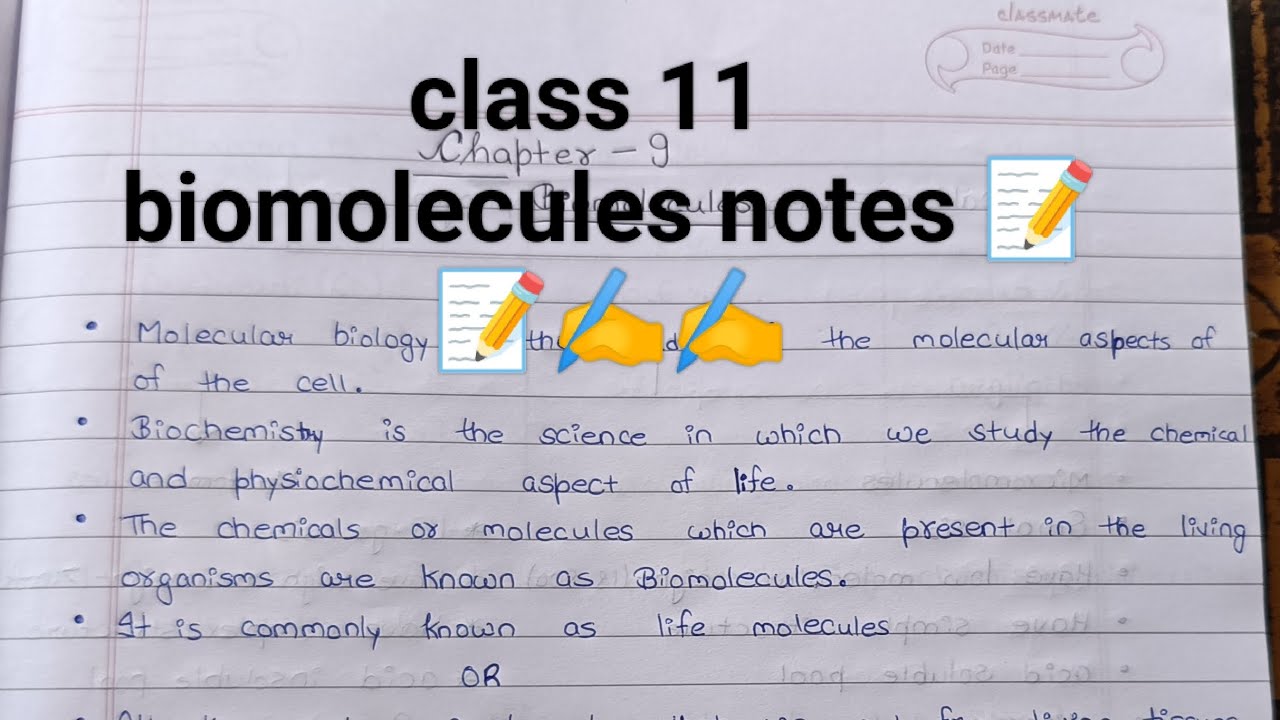 classmate
Date
Page
class 11
Chapter - 9
biomolecules notes
Biomolecules
• Molecular biology the molecular aspects of
of the cell.
• Biochemistry is the science in which we study the chemical
and physiochemical aspect of life.
• The chemicals or molecules which are present in the living
organisms are known as Biomolecules.
• It is commonly known as life molecules
OR